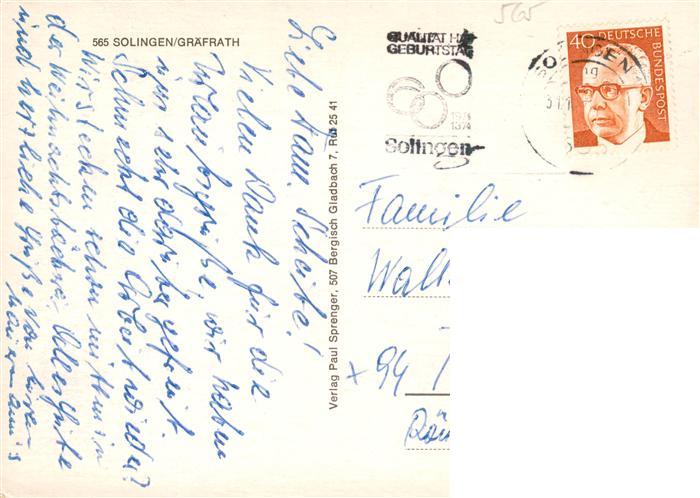 565 SOLINGEN/GRÄFRATH
565
QUALITÄT HAT
GEBURTSTAG
1374
Solingen
40 DEUTSCHE
BUNDESPOST
Liebe Fam. Scheibe!
Vielen Dank für die
Urlaubsgrüße, wir haben
uns sehr darüber gefreut.
Schmeckt die Arbeit wieder?
Wir stecken schon mitten in
der Weihnachtsbäckerei. Alles Gute
und herzliche Grüße von
Verlag Paul Sprenger, 507 Bergisch Gladbach 7, Ruf 25 41
Familie
Walt
+ 94